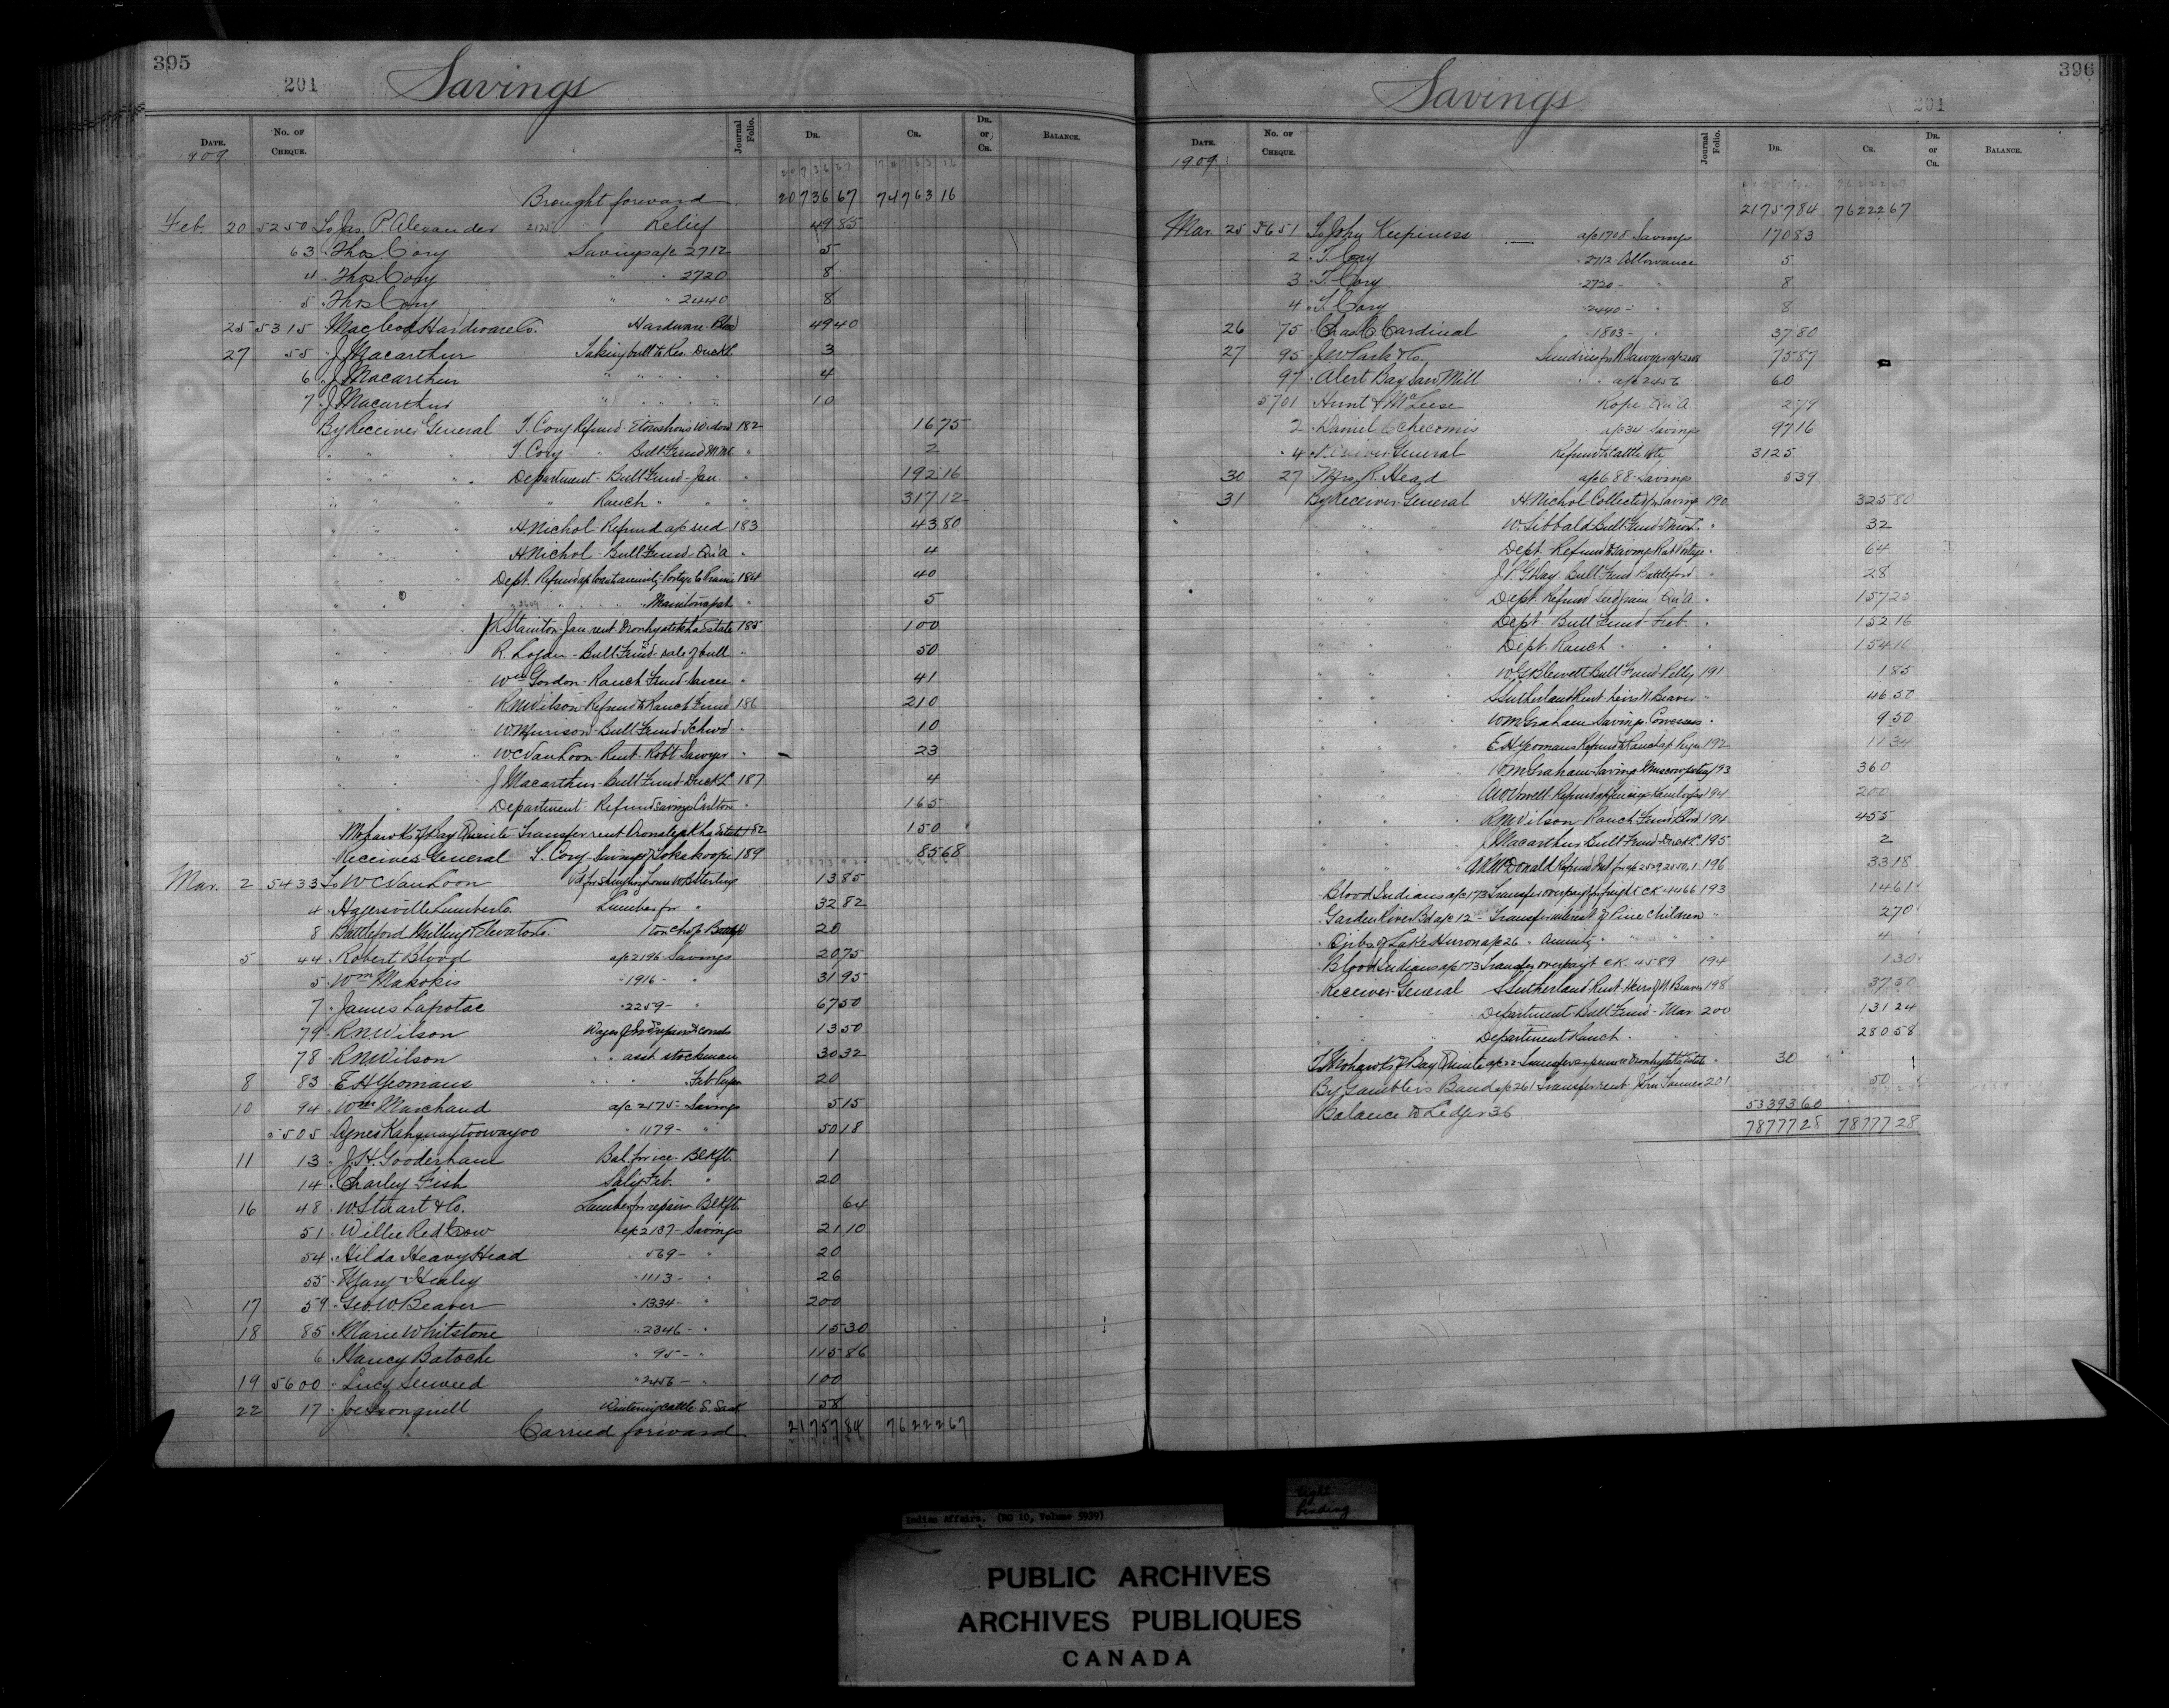 395
201 Savings
DATE. No. OF CHEQUE. Journal Folio. DR. CR. DR. or CR. BALANCE.
1909
Brought forward 20736 67 74763 16
Feb. 20 5250 To Jas. P. Alexander 2125 Relief 49 85
63 " Thos. Cory Savings a/c 2712 5
4 " Thos. Cory " " 2720 8
5 " Thos. Cory " " 2440 8
25 5315 " Macleod Hardware Co. Hardware - Blood 49 40
27 55 " J. Macarthur Taking bull to Res. Duck L. 3
6 " J. Macarthur " " " " 4
7 " J. Macarthur " " " " 10
By Receiver General T. Cory Refund 182 16 75
" " " T. Cory " Bull Fund " 2
" " " Department - Bull Fund - Jan. " 192 16
" " " " Ranch " " " 317 12
" " " H. Nichol - Refund a/c seed 183 43 80
" " " H. Nichol - Bull Fund - Qu'A " 4
" " " Dept. Refund Portage la Prairie 184 40
" " " " Manitowapah " 5
" " " Stainton - Jan. rent Oronhyatekha Estate 185 100
" " " R. Logan - Bull Fund - sale of bull " 50
" " " Wm Gordon - Ranch Fund - Sarcee " 41
" " " R.N. Wilson - Refund to Ranch Fund 186 210
" " " W. Murison - Bull Fund - " 10
" " " W.C. VanLoon - Rent - Robt Sawyer " 23
" " " J. Macarthur - Bull Fund - Duck L. 187 4
" " " Department - Refund savings Carlton " 165
" Mohawks of Bay Quinte - Transfer rent Oronhyatekha Estate 182 150
" Receiver General T. Cory - Savings of 189 85 68
Mar. 2 5433 To W.C. VanLoon W. Sterling 13 85
4 " Hagersville Lumber Co. Lumber for " 32 82
8 " Battleford Milling & Elevator Co. 1 ton chop 20
5 44 " Robert Blood a/c 2196 Savings 20 75
5 " Wm Makokis " 1916 - " 31 95
7 " James Lapotac " 2259 - " 67 50
79 " R.N. Wilson Wages 13 50
78 " R.N. Wilson " " asst stockman 30 32
8 83 " E.H. Yeomans " " " Feb. 20
10 94 " Wm Marchand a/c 2175 - Savings 5 15
5505 " Agnes Kahquaytoowayoo " 1179 - " 50 18
11 13 " J.H. Gooderham Bal. for ice - Blkft. 1
14 " Charley Fish Saly Feb. " 20
16 48 " W. Stuart & Co. Lumber for repairs Blkft. 64
51 " Willie Red Crow a/c 2187 - Savings 21 10
54 " Hilda Heavy Head " 569 - " 20
55 " Mary Healy " 1113 - " 26
17 59 " Geo. W. Beaver " 1334 - " 200
18 85 " Marie Whitstone " 2346 - " 15 30
6 " Nancy Batoche " 95 - " 115 86
19 5600 " Lucy Seeweed " 2456 - " 100
22 17 " Joe Wintering cattle S. Sask 58
Carried forward 21757 84 76222 67
396
Savings 201
DATE. No. OF CHEQUE. Journal Folio. DR. CR. DR. or CR. BALANCE.
1909
21757 84 76222 67
Mar. 25 5651 To John Keepiness a/c 1708 - Savings 170 83
2 " T. Cory " 2712 - Allowance 5
3 " T. Cory " 2720 - " 8
4 " T. Cory " 2440 - " 8
26 75 " Chas. C. Cardinal " 1803 - " 37 80
27 95 " J.W. Park & Co. Sundries for R. Sawyer a/c 75 87
97 " Alert Bay Saw Mill " " a/c 2456 60
5701 " Hunt & McLeese Rope - Qu'A 2 79
2 " Daniel Echecomis a/c 34 - Savings 97 16
4 " Receiver General Refund 31 25
30 27 " Mrs. R. Head a/c 688 - Savings 5 39
31 By Receiver General H. Nichol Collected for Savings 190 325 80
" " " W. Sibbald Bull Fund " 32
" " " Dept. Refund to Savings Rat Portage " 64
" " " J.P.G. Day Bull Fund Battleford " 28
" " " Dept. Refund seed grain - Qu'A " 157 23
" " " Dept. Bull Fund - Feb. " 152 16
" " " Dept. Ranch " " 154 16
" " " W.G. Blewett Bull Fund - Pelly 191 1 85
" " " S. Sutherland Rent heirs N. Beaver " 46 50
" " " W.M. Graham Savings - Cowessess " 9 50
" " " E.H. Yeomans Refund to Ranch a/c 192 11 34
" " " W.M. Graham - Savings - Muscowpetung 193 360
" " " A.W. Vowell - Refund Kamloops 194 200
" " " R.N. Wilson Ranch Fund Blood 194 455
" " " J. Macarthur Bull Fund - Duck L. 195 2
" " " A. McDonald Refund 196 33 18
" Blood Indians a/c 173 Transfer overpayt for freight CK. 4466 193 14 61
" Garden River Bd a/c 12 - Transfer interest of Pine children " 2 70
" Ojibs. of Lake Huron a/c 26 " Annuity " " 4
" Blood Indians a/c 173 Transfer overpayt CK. 4589 194 1 30
" Receiver General S. Sutherland Rent - Heirs of N. Beaver 198 37 50
" " " Department Bull Fund - Mar. 200 131 24
" " " Department Ranch " " 280 58
To Mohawks of Bay Quinte a/c Transfer Oronhyatekha Estate " 30
By Gambler's Band a/c 261 Transfer rent John Tanner 201 50
Balance to Ledger 36 53393 60
78777 28 78777 28
Indian Affairs. (RG 10, Volume 5939)
tight binding
PUBLIC ARCHIVES
ARCHIVES PUBLIQUES
CANADA